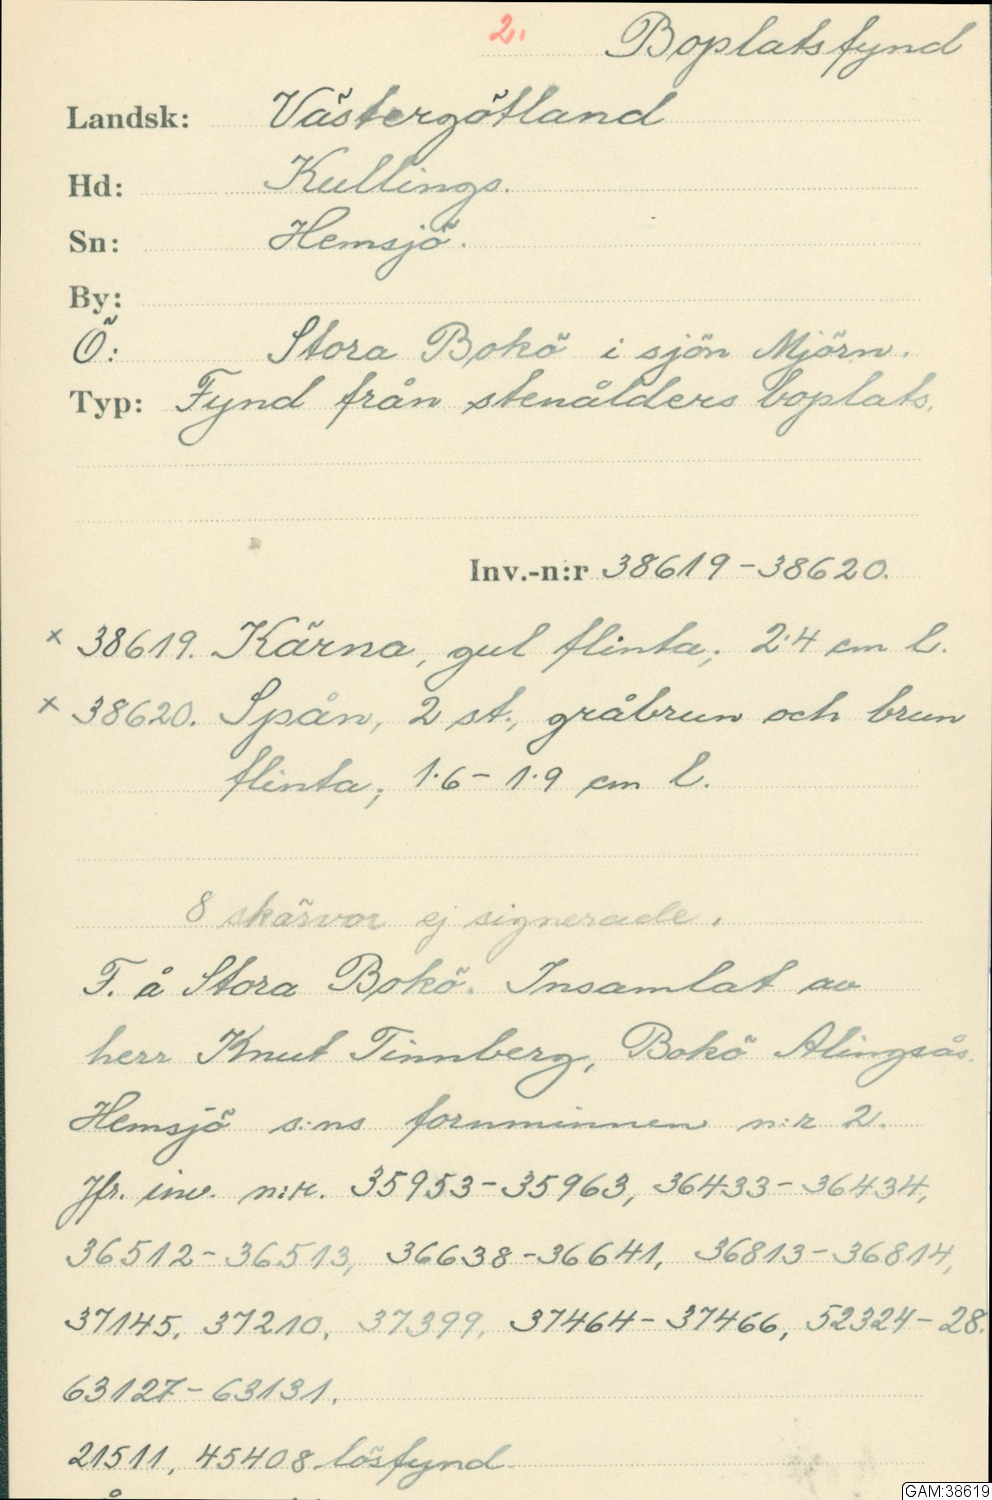 2. Boplatsfynd
Landsk: Västergötland
Hd: Kullings.
Sn: Hemsjö.
By:
Ö: Stora Bokö i sjön Mjörn.
Typ: Fynd från stenålders boplats.
Inv.-n:r 38619-38620.
x 38619. Kärna, gul flinta; 2·4 cm l.
x 38620. Spån, 2 st., gråbrun och brun
flinta; 1·6-1·9 cm l.
8 skärvor ej signerade.
F. å Stora Bokö. Insamlat av
herr Knut Tinnberg, Bokö Alingsås.
Hemsjö s:ns fornminnen n:r 2.
Jfr. inv. n:r. 35953-35963, 36433-36434,
36512-36513, 36638-36641, 36813-36814,
37145, 37210, 37399, 37464-37466, 52324-28.
63127-63131.
21511, 45408 lösfynd
GAM:38619